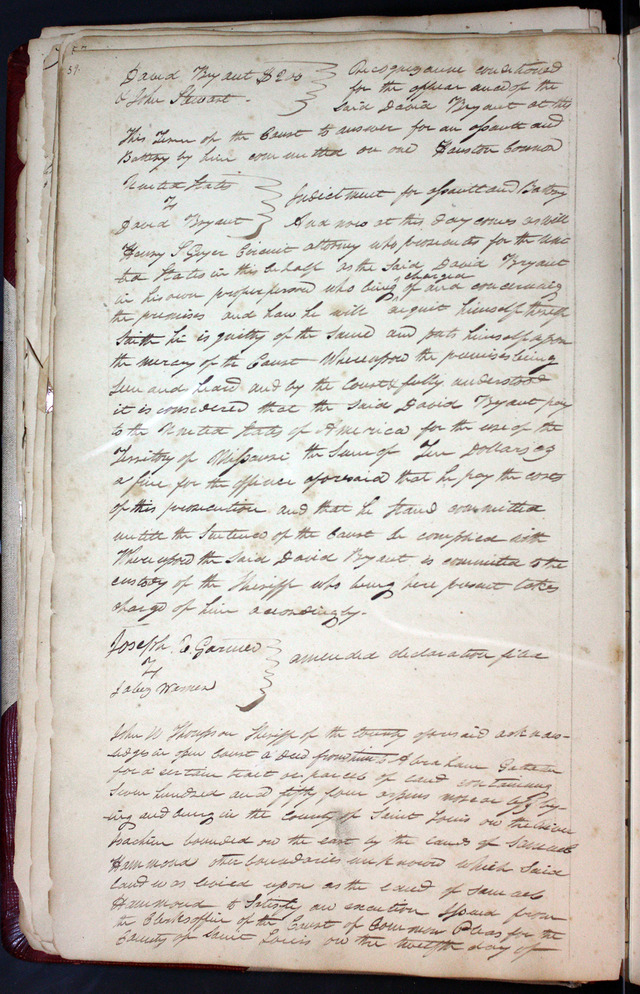 57.
David Bryant $200
& John Stewart.
Recognizance conditioned
for the appearance of the
Said David Bryant at this
This Term of the Court to answer for an assault and
Battery by him committed on one
United States
vs
David Bryant
Indictment for assault and Battery
And now at this day comes as well
Henry S Geyer Circuit attorney who prosecutes for the Uni-
ted States in this behalf as the Said David Bryant
in his own proper person who being charged of and concerning
the premises and how he will acquit himself thereof
Saith he is guilty of the Same and puts himself upon
the mercy of the Court Whereupon the premises being
Seen and heard and by the Court fully understood
it is considered that the said David Bryant pay
to the United States of America for the use of the
Territory of Missouri the Sum of Ten Dollars as
a fine for the offence aforesaid that he pay the costs
of this prosecution and that he stand committed
until the Sentence of the Court be complied with
Whereupon the Said David Bryant is committed to the
custody of the Sheriff who being here present takes
charge of him accordingly.
Joseph E. Garnier
vs
Jabez Warner
amended declaration filed
John W Thompson Sheriff of the County aforesaid acknow-
ledges in open Court a Deed from him to Abraham
for a certain tract or parcel of land containing
Seven hundred and fifty four arpens more or less ly-
ing and being in the County of Saint Louis on the river
bounded on the east by the lands of Samuel
Hammond other boundaries unknown which Said
land was levied upon as the land of Samuel
Hammond to Satisfy an execution issued from
the Clerks office of the Court of Common Pleas for the
County of Saint Louis on the twelfth day of